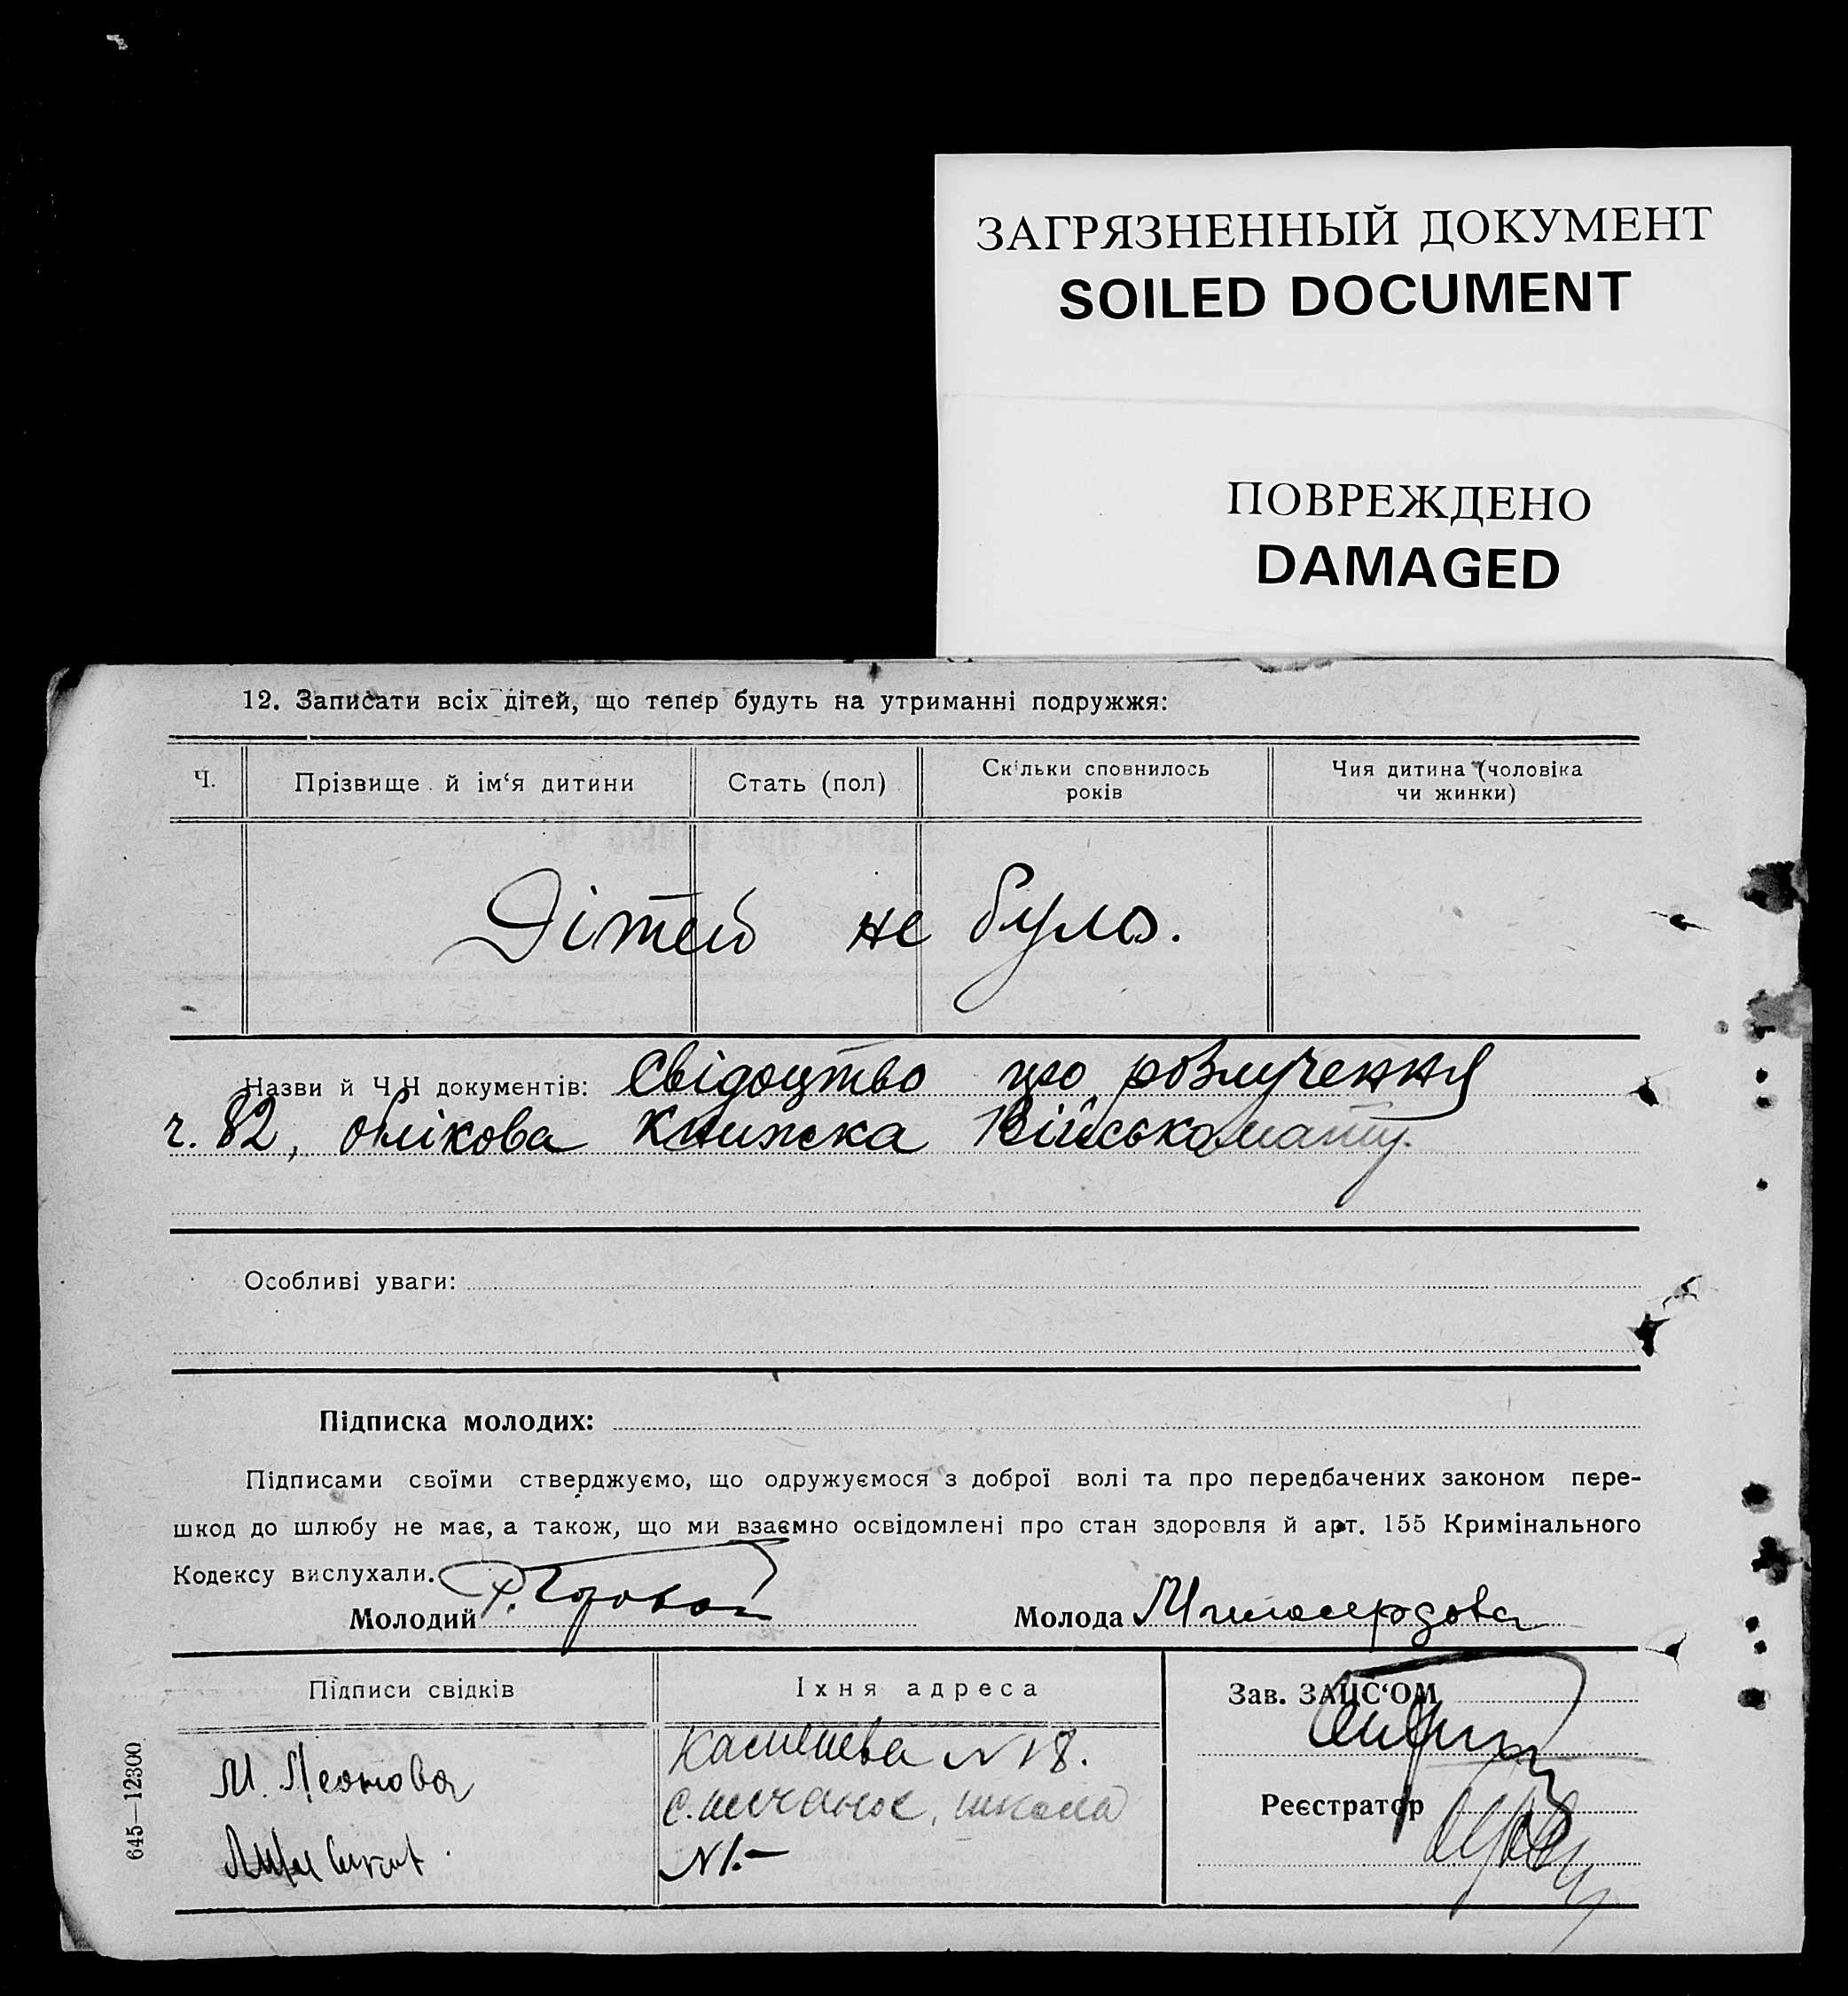 ЗАГРЯЗНЕННЫЙ ДОКУМЕНТ
SOILED DOCUMENT
ПОВРЕЖДЕНО
DAMAGED
12. Записати всіх дітей, що тепер будуть на утриманні подружжя:
Ч. Прізвище й ім‘я дитини Стать (пол) Скільки сповнилось років Чия дитина (чоловіка чи жинки)
Дітей не було.
Назви й Ч.Ч документів: Свідоцтво про розлучення
ч. 82, облікова книжка Військомату.
Особливі уваги:
Підписка молодих:
Підписами своїми стверджуємо, що одружуємося з доброї волі та про передбачених законом пере-
шкод до шлюбу не має, а також, що ми взаємно освідомлені про стан здоровля й арт. 155 Кримінального
Кодексу вислухали.
Молодий Молода Милосердова
Підписи свідків Їхня адреса Зав. ЗАЦС‘ОМ
М. Леонова N 18.
школа
N 1.–
Реєстратор
645—12300